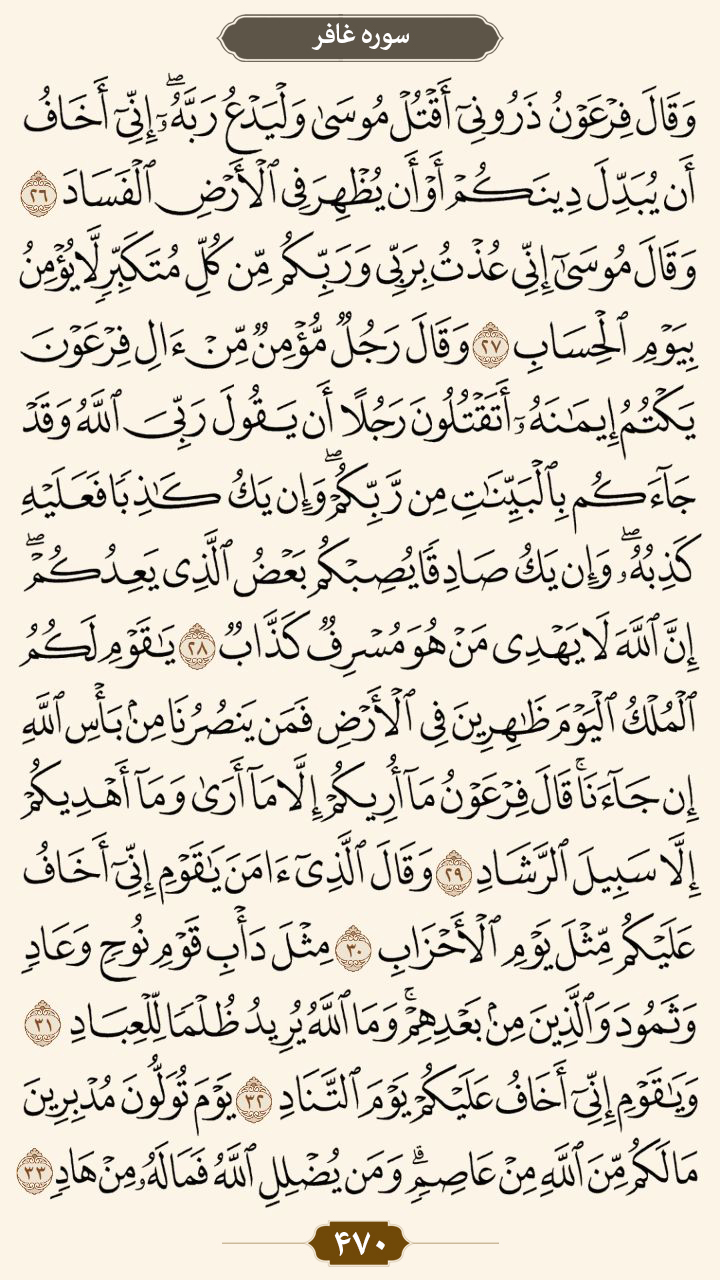 سوره غافر
وَقَالَ فِرْعَوْنُ ذَرُونِىٓ أَقْتُلْ مُوسَىٰ وَلْيَدْعُ رَبَّهُۥٓ ۖ إِنِّىٓ أَخَافُ
أَن يُبَدِّلَ دِينَكُمْ أَوْ أَن يُظْهِرَ فِى ٱلْأَرْضِ ٱلْفَسَادَ ٢٦
وَقَالَ مُوسَىٰٓ إِنِّى عُذْتُ بِرَبِّى وَرَبِّكُم مِّن كُلِّ مُتَكَبِّرٍ لَّا يُؤْمِنُ
بِيَوْمِ ٱلْحِسَابِ ٢٧ وَقَالَ رَجُلٌ مُّؤْمِنٌ مِّنْ ءَالِ فِرْعَوْنَ
يَكْتُمُ إِيمَـٰنَهُۥٓ أَتَقْتُلُونَ رَجُلًا أَن يَقُولَ رَبِّىَ ٱللَّهُ وَقَدْ
جَآءَكُم بِٱلْبَيِّنَـٰتِ مِن رَّبِّكُمْ ۖ وَإِن يَكُ كَـٰذِبًا فَعَلَيْهِ
كَذِبُهُۥ ۖ وَإِن يَكُ صَادِقًا يُصِبْكُم بَعْضُ ٱلَّذِى يَعِدُكُمْ ۖ
إِنَّ ٱللَّهَ لَا يَهْدِى مَنْ هُوَ مُسْرِفٌ كَذَّابٌ ٢٨ يَـٰقَوْمِ لَكُمُ
ٱلْمُلْكُ ٱلْيَوْمَ ظَـٰهِرِينَ فِى ٱلْأَرْضِ فَمَن يَنصُرُنَا مِنۢ بَأْسِ ٱللَّهِ
إِن جَآءَنَا ۚ قَالَ فِرْعَوْنُ مَآ أُرِيكُمْ إِلَّا مَآ أَرَىٰ وَمَآ أَهْدِيكُمْ
إِلَّا سَبِيلَ ٱلرَّشَادِ ٢٩ وَقَالَ ٱلَّذِىٓ ءَامَنَ يَـٰقَوْمِ إِنِّىٓ أَخَافُ
عَلَيْكُم مِّثْلَ يَوْمِ ٱلْأَحْزَابِ ٣٠ مِثْلَ دَأْبِ قَوْمِ نُوحٍ وَعَادٍ
وَثَمُودَ وَٱلَّذِينَ مِنۢ بَعْدِهِمْ ۚ وَمَا ٱللَّهُ يُرِيدُ ظُلْمًا لِّلْعِبَادِ ٣١
وَيَـٰقَوْمِ إِنِّىٓ أَخَافُ عَلَيْكُمْ يَوْمَ ٱلتَّنَادِ ٣٢ يَوْمَ تُوَلُّونَ مُدْبِرِينَ
مَا لَكُم مِّنَ ٱللَّهِ مِنْ عَاصِمٍ ۗ وَمَن يُضْلِلِ ٱللَّهُ فَمَا لَهُۥ مِنْ هَادٍ ٣٣
۴۷۰